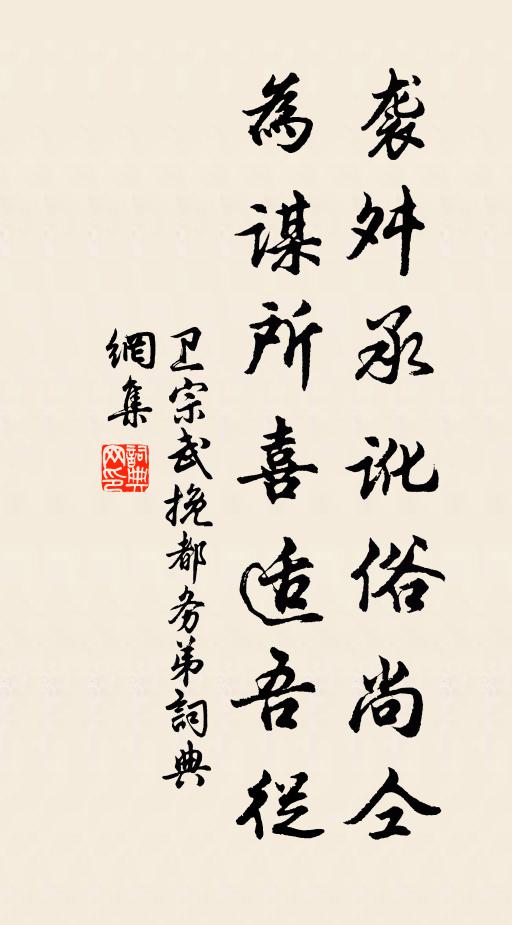 袭舛承讹俗尚仝
為谋所喜适吾從
卫宗武挽都务弟詞典
網集
詞典网印